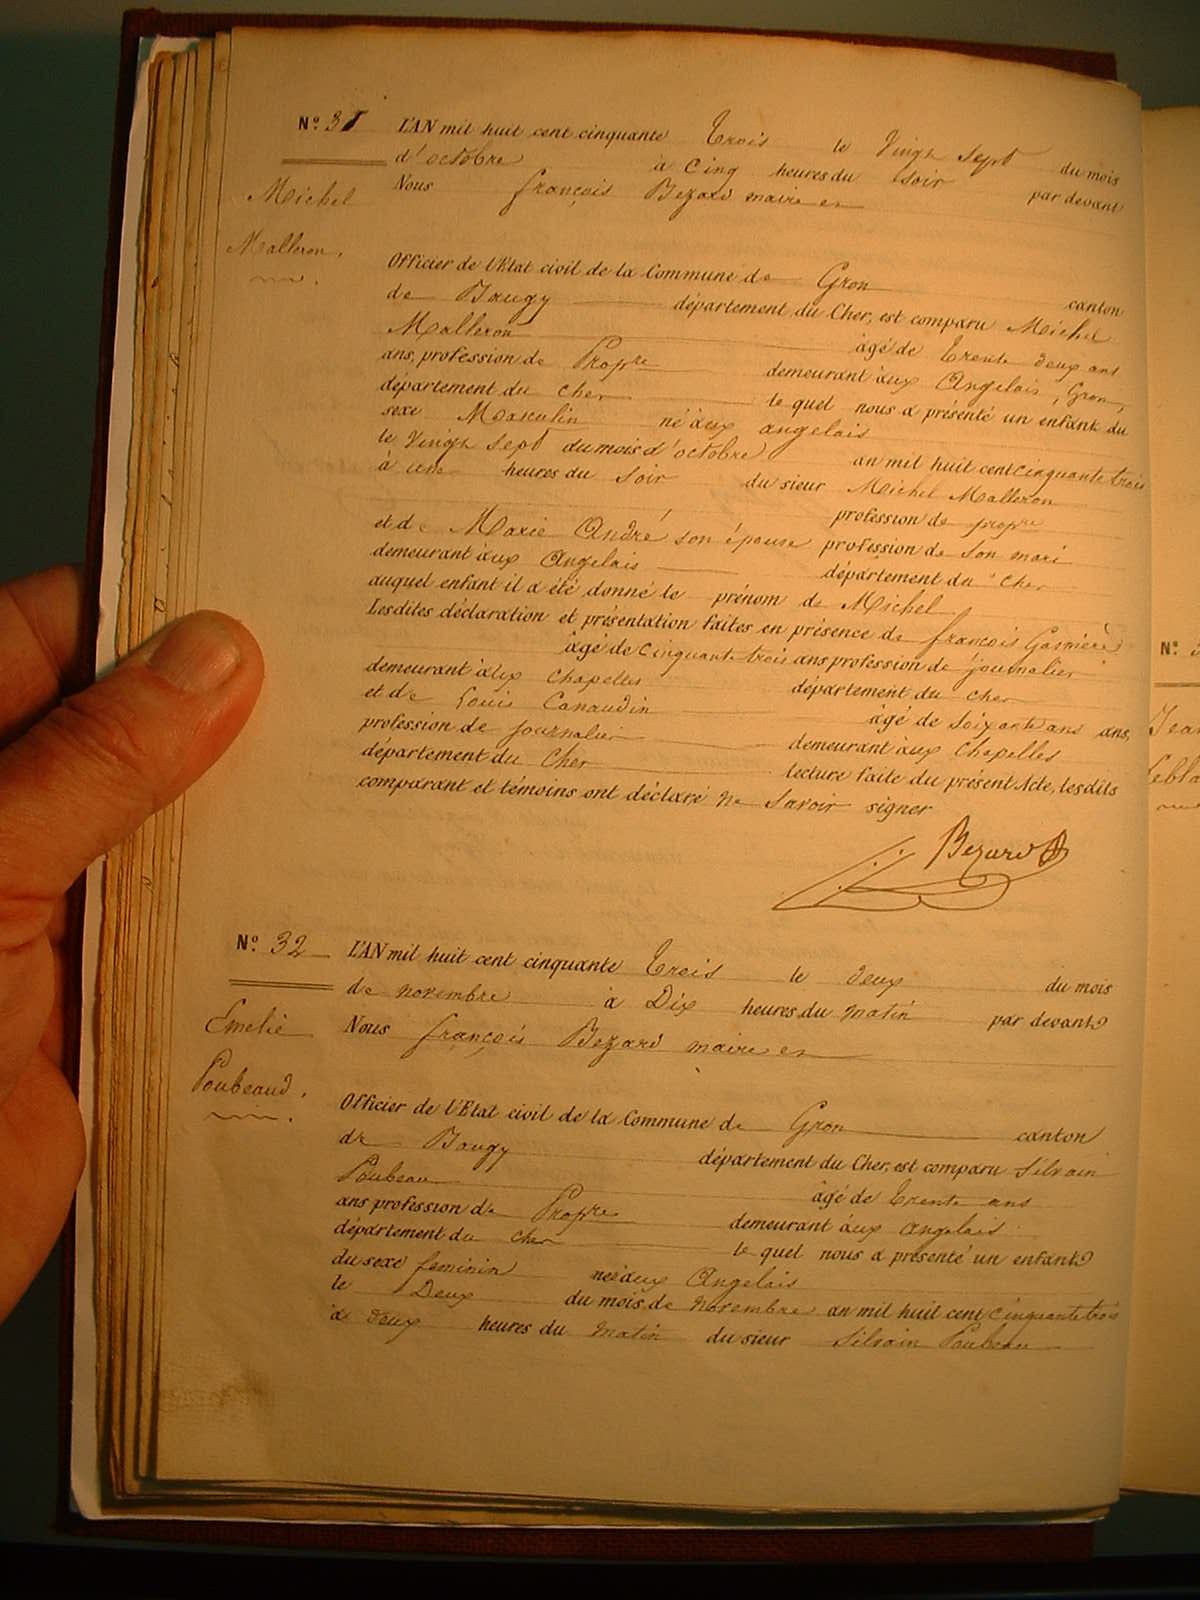 N.º 31 L'AN mil huit cent cinquante Trois le Vingt Sept du mois
d'octobre à Cinq heures du Soir par devant
Nous françois Bezard maire en
Michel
Malleron.
Officier de l'Etat civil de la Commune de Gron canton
de Baugy département du Cher, est comparu Michel
Malleron âgé de Trente deux ans
ans, profession de Propre demeurant aux Angelais, Gron,
département du Cher le quel nous a présenté un enfant du
sexe Masculin né aux angelais
le Vingt Sept du mois d'octobre an mil huit cent cinquante trois
à une heures du Soir du sieur Michel Malleron
profession de propre
et de Marie André son épouse profession de Son mari
demeurant aux Angelais département du Cher
auquel enfant il a été donné le prénom de Michel
Lesdites déclaration et présentation faites en présence de françois
âgé de cinquante trois ans profession de journalier
demeurant aux Chapelles département du Cher
et de Louis Canaudin âgé de Soixante ans ans,
profession de journalier demeurant aux Chapelles
département du Cher lecture faite du présent Acte, lesdits
comparant et témoins ont déclaré ne Savoir signer
Bezard
N.º 32 L'AN mil huit cent cinquante Trois le deux du mois
de novembre à Dix heures du matin par devant
Nous françois Bezard maire en
Emelie
Poubeaud.
Officier de l'Etat civil de la Commune de Gron canton
de Baugy département du Cher, est comparu Silvain
Poubeau âgé de Trente ans
ans profession de Propre demeurant aux Angelais
département du Cher le quel nous a présenté un enfant
du sexe feminin née aux Angelais
le Deux du mois de novembre an mil huit cent cinquante trois
à deux heures du matin du sieur Silvain Poubeau
N.º